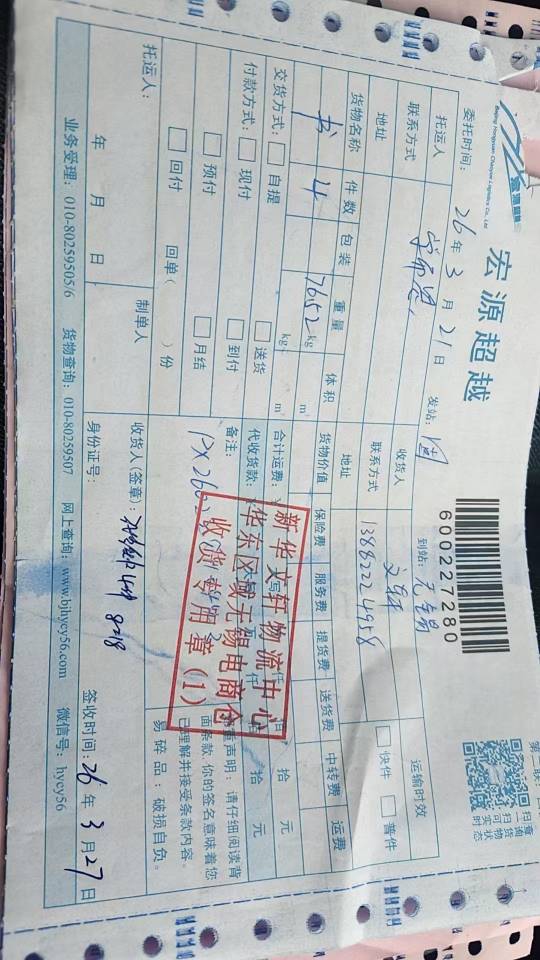 宏源超越
Beijing Hongyuan Chaoyue Logistics Co., Ltd
6000227280
委托时间：26年3月21日 发站： 到站：无锡
托运人 收货人 文轩 运输时效
联系方式 联系方式 13882224958 快件 普件
地址 地址
货物名称 件数 包装 重量 体积 货物价值 保险费 服务费 提货费 送货费 中转费 运费
书 4 7652kg m³
交货方式： 自提 送货 合计运费： 拾 元
付款方式： 现付 到付 代收货款： 仟 拾 元
预付 月结 备注：
回付 回单（ ）份
新华文轩物流中心
华东区域无锡电商仓
收货专用章（1）
郑重声明：请仔细阅读背
面条款，你的签名意味着您
已理解并接受条款内容。
易碎品：破损自负。
托运人： 制单人 收货人（签章）： 8218
年 月 日 身份证号： 签收时间：26年3月27日
业务受理：010-80259505/6 货物查询：010-80259507 网上查询：www.bjhycy56.com 微信号：hycy56